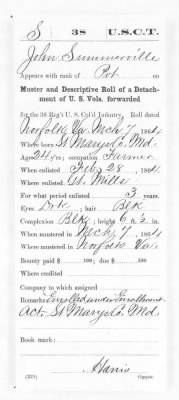 S 38 U.S.C.T.
John Summerville
Appears with rank of Pvt on
Muster and Descriptive Roll of a Detach-
ment of U. S. Vols. forwarded
for the 38 Reg't U.S. Col'd Infantry. Roll dated
Norfolk Va. Mch 7, 1864.
Where born St Marys Co. Md.
Age 24 y'rs; occupation Farmer
When enlisted Feb 28, 1864.
Where enlisted Gt. Mills
For what period enlisted 3 years.
Eyes Drk; hair Blk
Complexion Blk; height 6 ft. 2 in.
When mustered in Mch 7, 1864.
Where mustered in Norfolk Va.
Bounty paid $ 100; due $ 100
Where credited
Company to which assigned
Remarks: Enrolled under Enrollment
Act. St Marys Co. Md.
Book mark:
Harris
(339) Copyist.